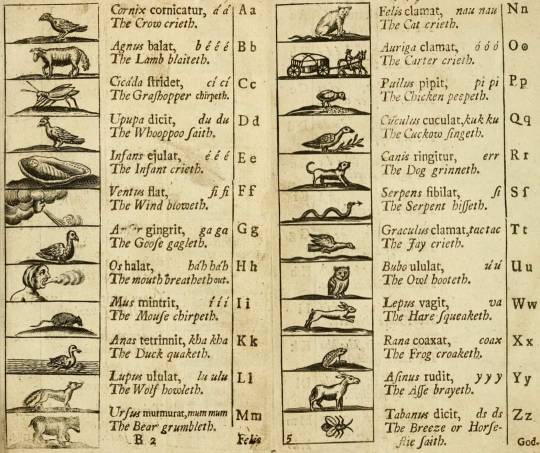 Cornix cornicatur, á á A a
The Crow crieth.
Agnus balat, b é é é B b
The Lamb blaiteth.
Cicáda stridet, cí cí C c
The Grashopper chirpeth.
Upupa dicit, du du D d
The Whooppoo saith.
Infans ejulat, é é é E e
The Infant crieth.
Ventus flat, fi fi F f
The Wind bloweth.
gingrit, ga ga G g
The Goose gagleth.
Os halat, há'h há'h H h
The mouth breatheth out.
Mus mintrit, í í í I i
The Mouse chirpeth.
Anas tetrinnit, kha kha K k
The Duck quaketh.
Lupus ululat, lu ulu L l
The Wolf howleth.
Ursus murmurat, mum mum M m
The Bear grumbleth.
B 2 Felis
Felis clamat, nau nau N n
The Cat crieth.
Auriga clamat, ó ó ó O o
The Carter crieth.
Pullus pipit, pi pi P p
The Chicken peepeth.
Cúculus cuculat, kuk ku Q q
The Cuckow singeth.
Canis ringitur, err R r
The Dog grinneth.
Serpens sibilat, si S s
The Serpent hisseth.
Graculus clamat, tac tac T t
The Jay crieth.
Bubo ululat, ú ú U u
The Owl hooteth.
Lepus vagit, va W w
The Hare squeaketh.
Rana coaxat, coax X x
The Frog croaketh.
Asinus rudit, y y y Y y
The Asse brayeth.
Tabanus dicit, ds ds Z z
The Breeze or Horse-
flie saith.
5 God-